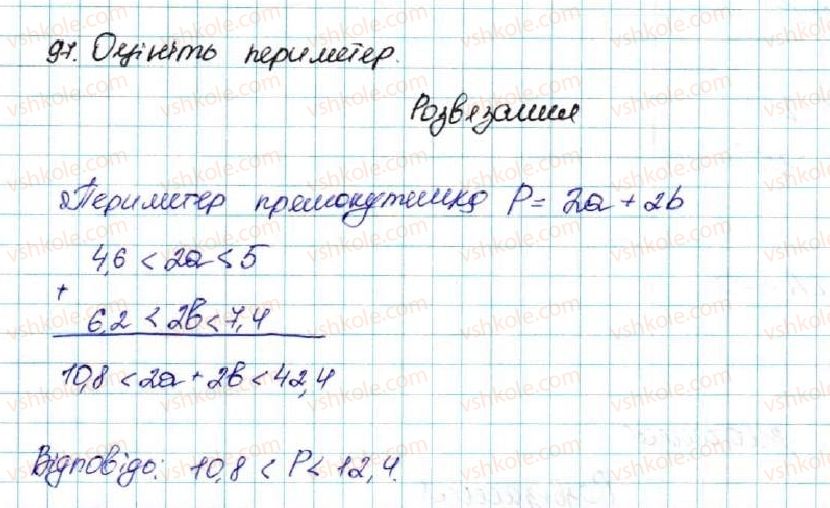 97. Оцініть периметр.
Розвязання
Периметр прямокутника P = 2a + 2b
4,6 < 2a < 5
+
6,2 < 2b < 7,4
10,8 < 2a + 2b < 12,4
Відповідь: 10,8 < P < 12,4.